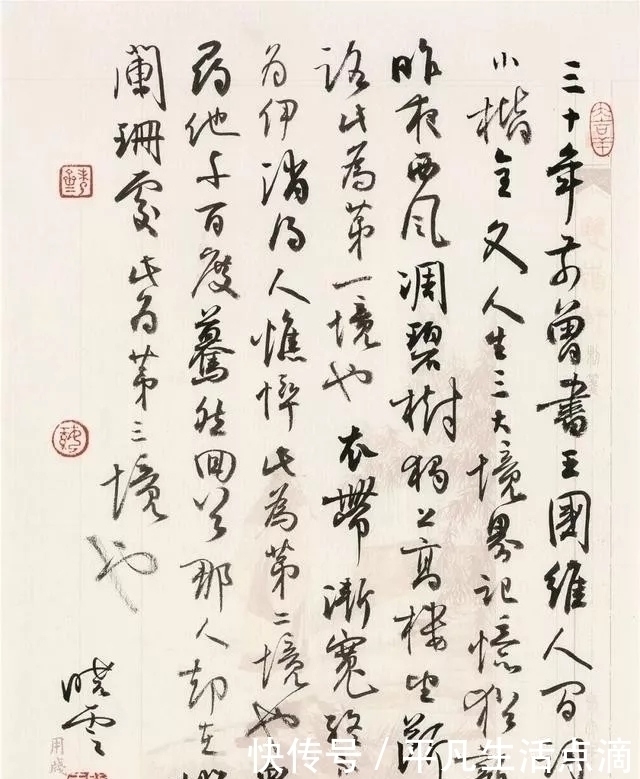 三十年前曾書王國維人间
小楷全文人生三大境界記憶猶
昨夜西风凋碧樹獨上高樓望断
路此為第一境也 衣帶漸寬終
为伊消得人憔悴此為第二境也
尋他千百度驀然回首那人却在
闌珊處此为第三境也
晓雲
大吉羊
用牋
快传号/平凡生活点滴